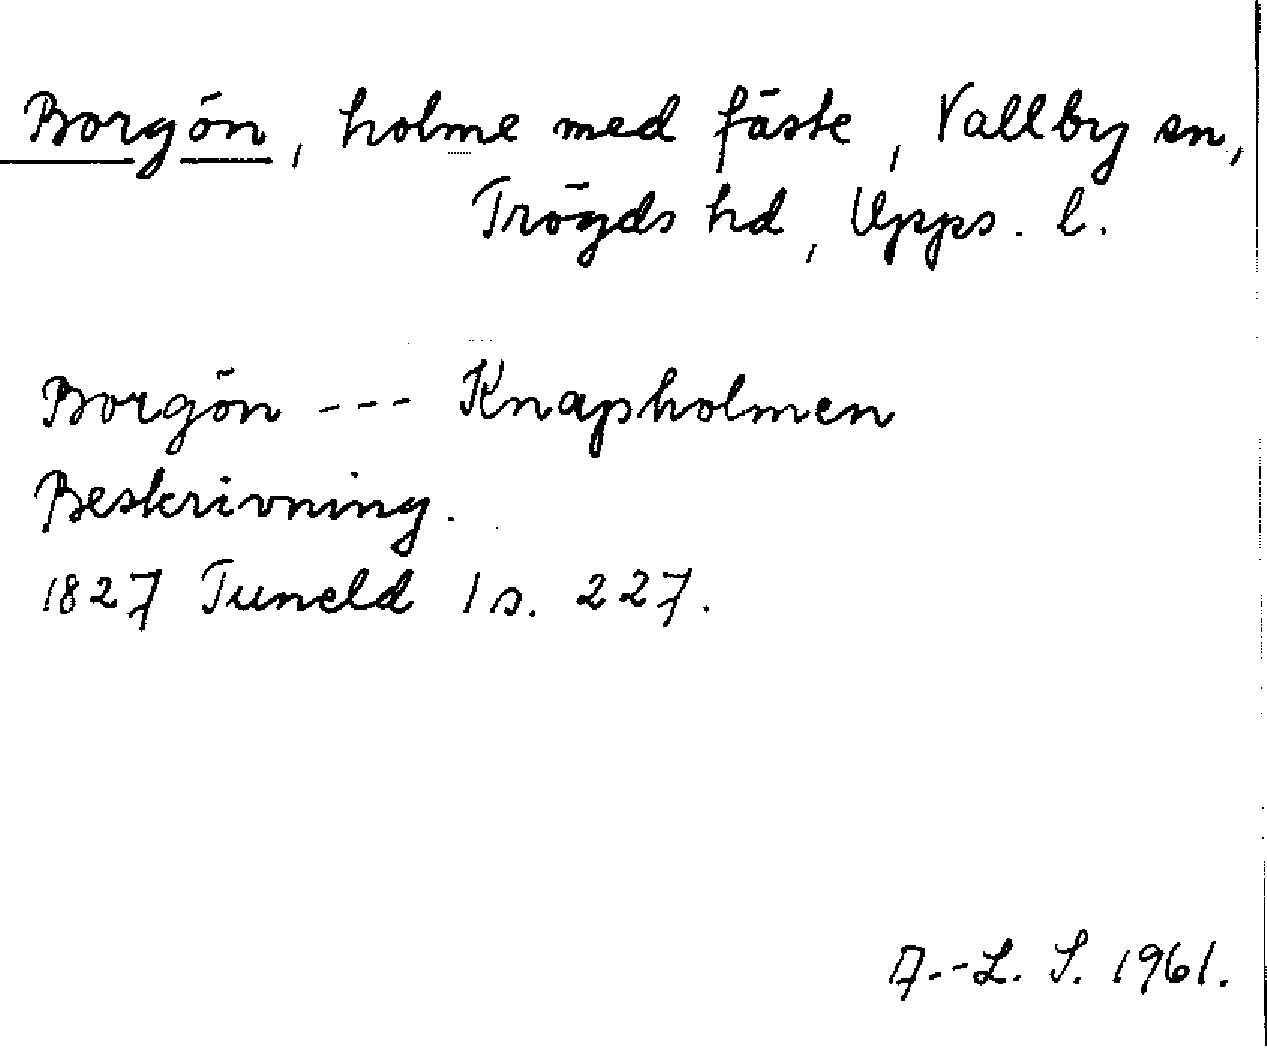 Borgön, holme med fäste, Vallby sn,
Trögds hd, Upps. l.
Borgön --- Knapholmen
Beskrivning.
1827 Tuneld 1 s. 227.
A.-L. S. 1961.